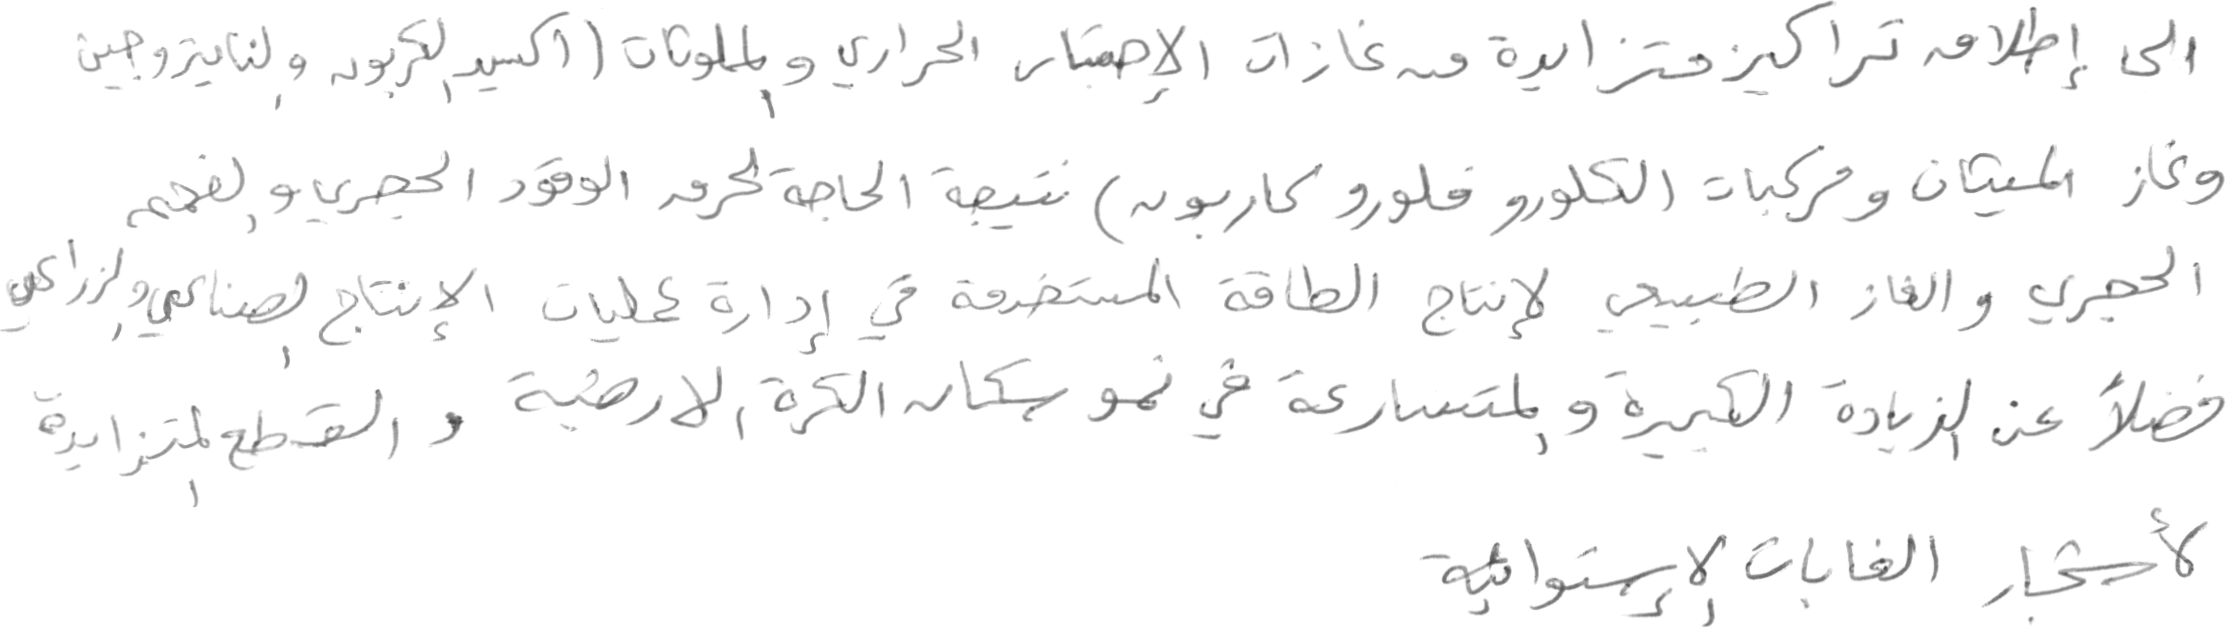 الى إطلاق تراكيز متزايدة من غازات الإحتباس الحراري والملوثات (اكسيد الكربون والنايتروجين
وغاز الميثان ومركبات الكلورو فلورو كاربون) نتيجة الحاجة لحرق الوقود الحجري والفحم
الحجري والغاز الطبيعي لإنتاج الطاقة المستخدمة في إدارة عمليات الإنتاج الصناعي والزراعي
فضلاً عن الزيادة الكبيرة والمتسارعة في نمو سكان الكرة الارضية والقطع المتزايدة
لأشجار الغابات الإستوائية